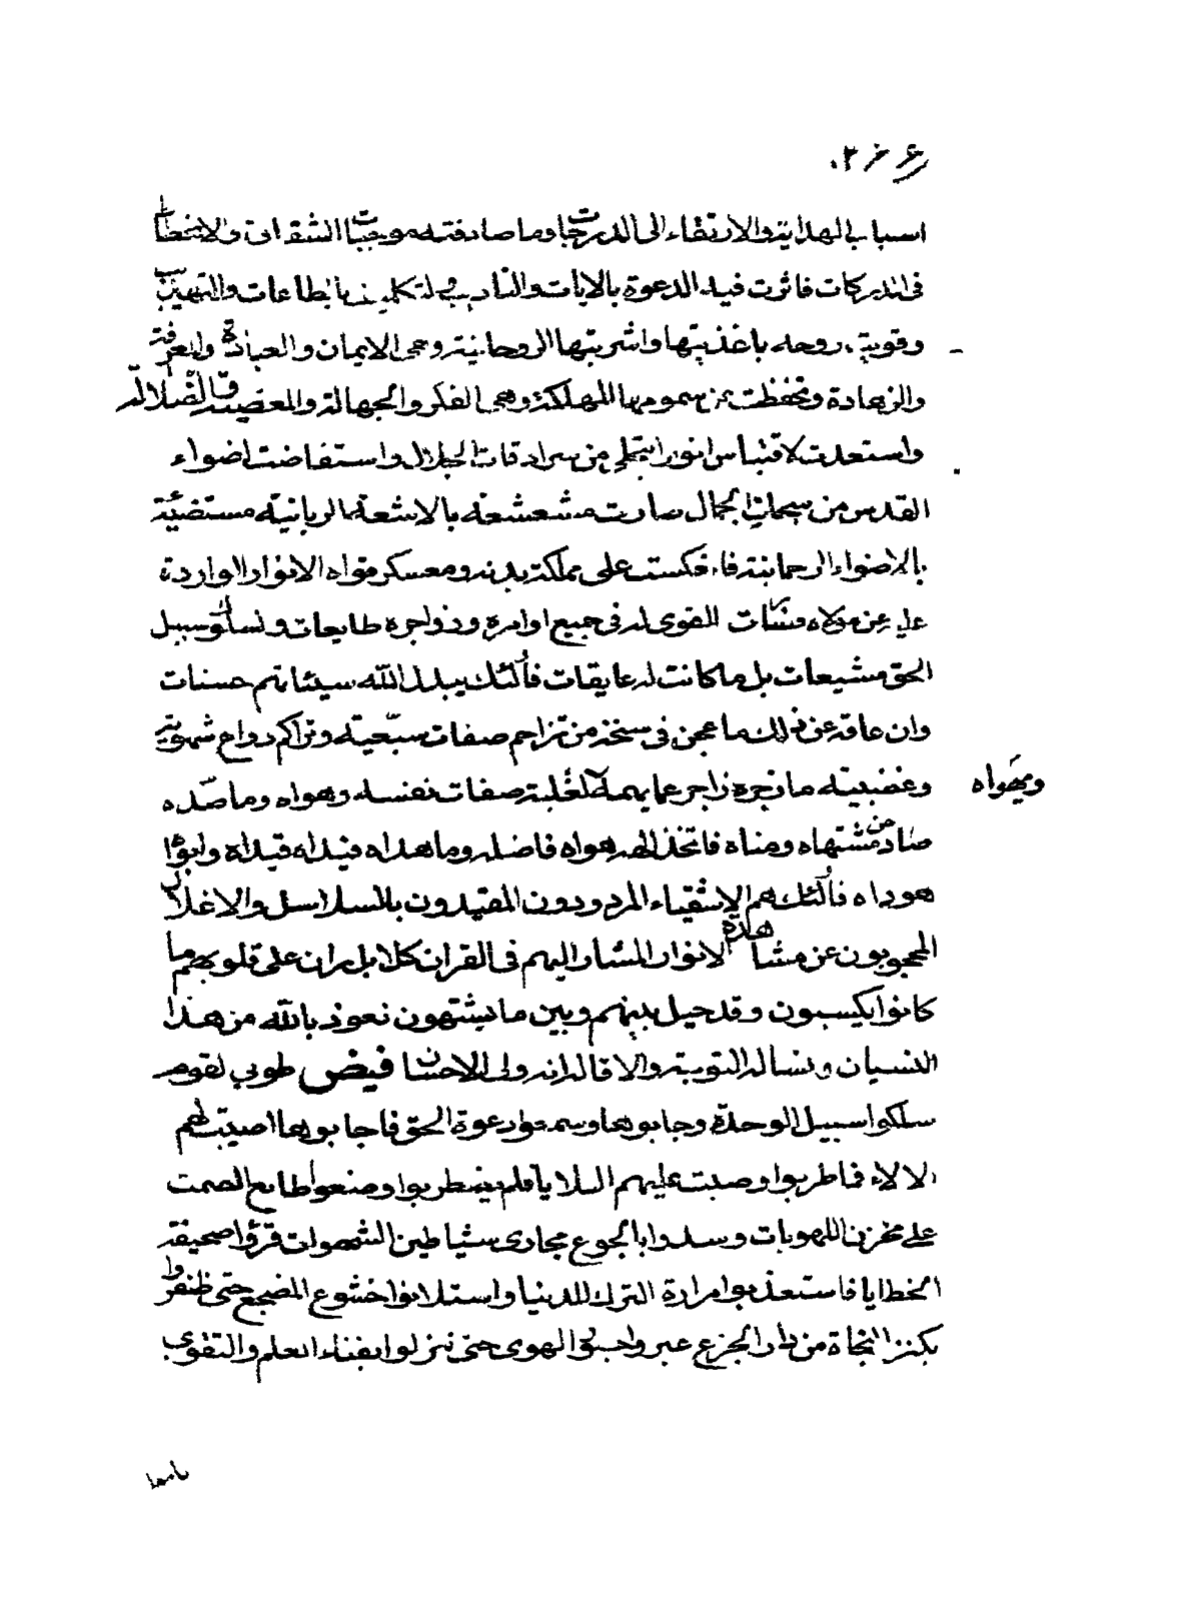 اسباب الهداية والارتقاء الى الدرجات وما صادفته موجبات الشقاوة والانحطاط
فى الدركات فاثرت فيه الدعوة بالايات والتاديب والتكليف بالطاعات والتهذيب
وقويت روحه باغذيتها واشربتها الروحانية وهى الايمان والعبادة والمعرفة
والزهادة وتحفظت عن سمومها المهلكة وهى الفكر والجهالة والمعصية والضلالة
واستعدت لاقتباس انوار التجلى من سرادقات الجلال واستفاضت اضواء
القدس من سبحات الجمال صارت مشعشعة بالاشعة الربانية مستضيئة
بالاضواء الرحمانية فانعكست على مملكة بدنه ومعسكر قواه الانوار الواردة
عليه من مولاه القوى له فى جميع اوامره وزواجره طايعات ولسلوك سبيل
الحق مشيعات بل ما كانت له عايقات فأولئك يبدل الله سيئاتهم حسنات
وان عاقه عن ذلك ما عجن فى سنخه من تزاحم صفات سبعية وتراكم دواع شهوية
وغضبية ما زجره زاجر عما يهمه لغلبة صفات نفسه وهواه وما صده
ويهواه
صاد عن مشتهاه ومناه فاتخذ الهه هواه فاضله وما هداه قيداه وابواه
هوداه فأولئك هم الاشقياء المردودون المقيدون بالسلاسل والاغلال
المحجوبون عن مشاهدة الانوار المشار اليهم فى القران كلا بل ران على قلوبهم ما
كانوا يكسبون وقد حيل بينهم وبين ما يشتهون نعوذ بالله من هذا
النسيان ونساله التوبة والاقالة انه ولى الاحسان فيض طوبى لقوم
سلكوا سبيل الوحدة وجابوها وسمعوا دعوة الحق فاجابوها اصيبت لهم
الالاء فما طربوا وصبت عليهم البلايا فلم يضطربوا وصنعوا طابع الصمت
على مخزن اللهويات وسدوا بالجوع مجارى شياطين الشهوات قرؤا صحيفة
الخطايا فاستعذبوا مرارة الترك للدنيا واستلانوا خشوع المضجع حتى ظفروا
بكنز النجاة من دار الجزع عبروا جسر الهوى حتى نزلوا بفناء العلم والتقوى